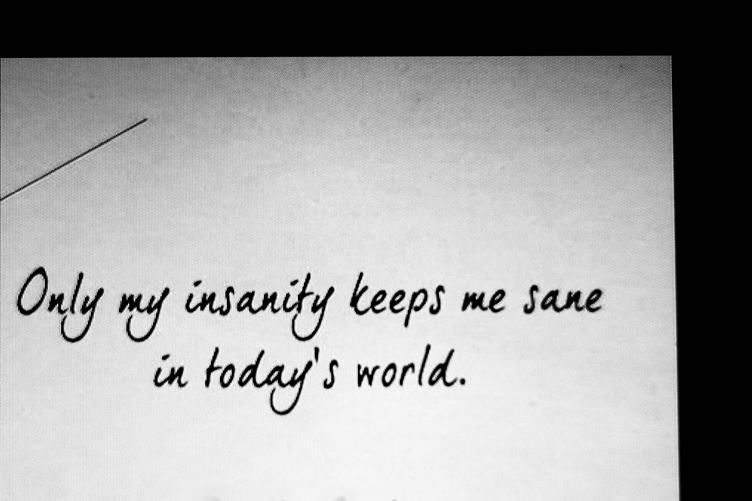 Only my insanity keeps me sane
in today's world.